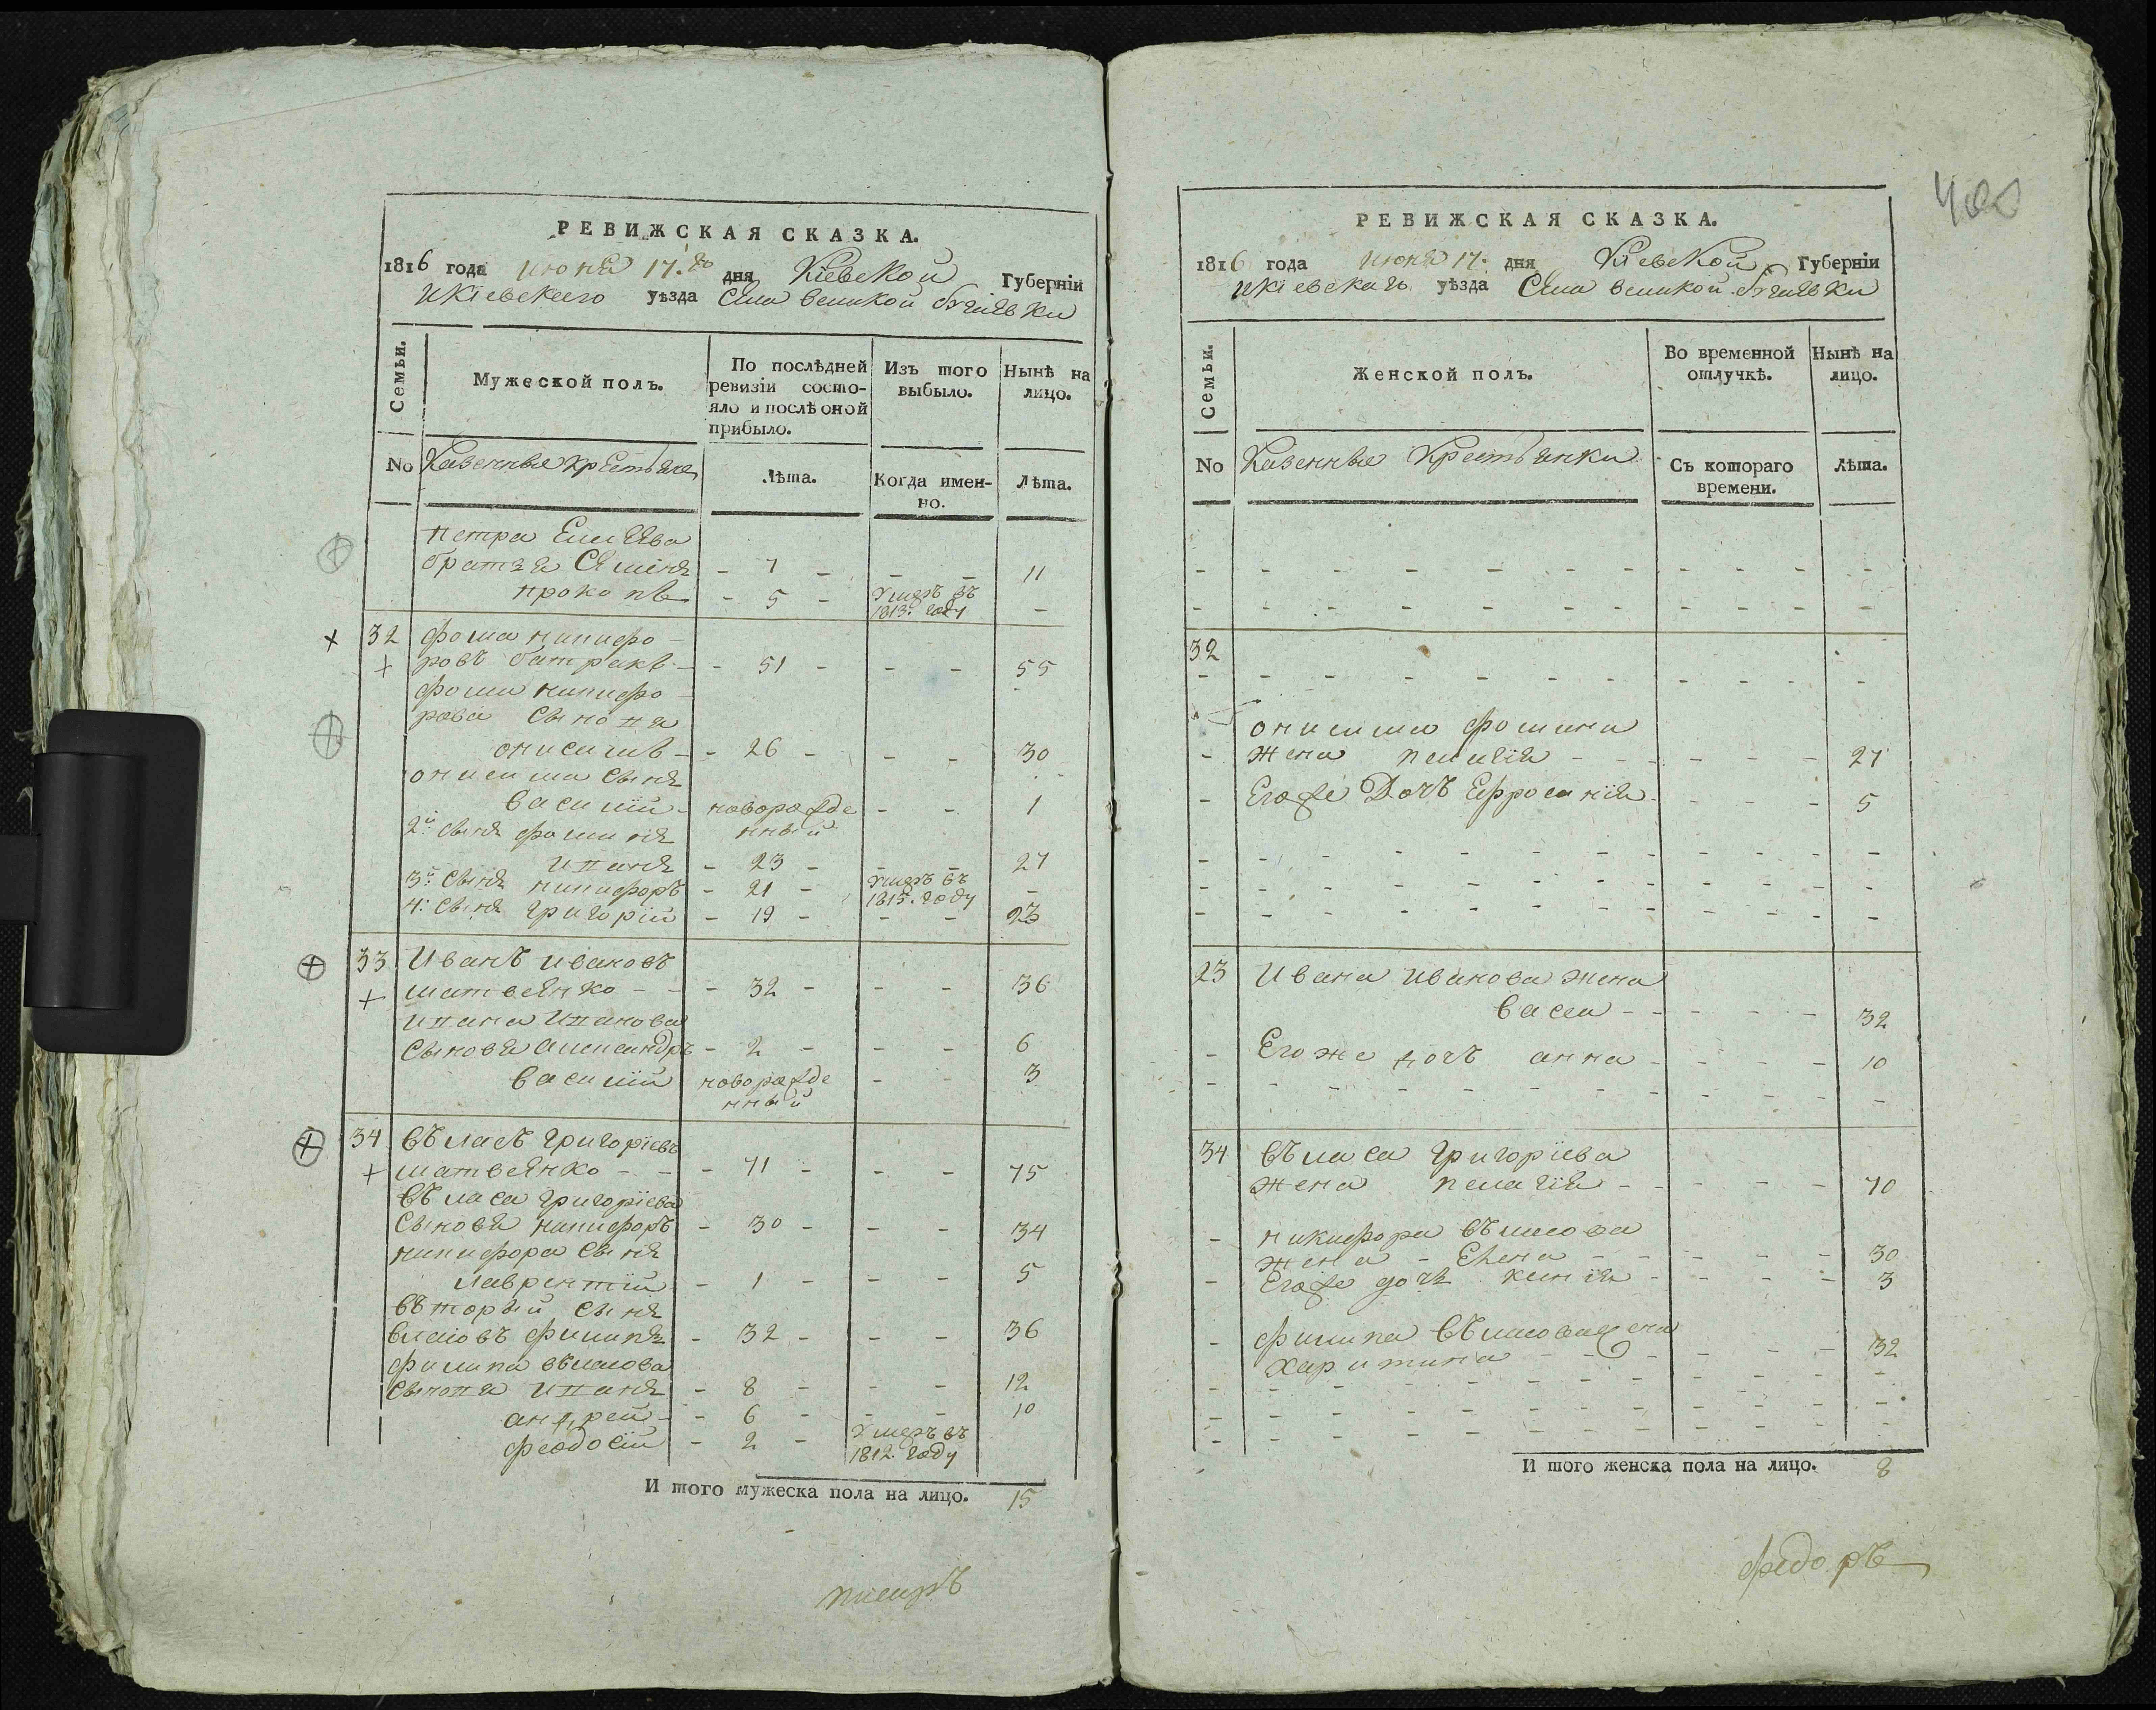 РЕВИЖСКАЯ СКАЗКА.
1816 года июня 17.го дня Кіевской Губерніи
Икіевскаго уѣзда Села великой
Семьи.
Мужеской полъ.
По послѣдней ревизіи состо-
яло и послѣ оной
прибыло.
Изъ того
выбыло.
Нынѣ на
лицо.
No Казенные крестьяне
Лѣта.
Когда имен-
но.
Лѣта.
петра Елисѣева
братья Семіонъ - 7 - - - 11
прокопъ - 5 - Умеръ въ 1813. году -
32 фома никифо-
ровъ батракъ - - 51 - - - 55
фомы никифо-
рова сыновя
онисимъ - - 26 - - - 30
онисима сынъ
василій - новорожде - - 1
нный
2й сынъ фоминъ
иванъ - 23 - - - 27
3й сынъ никифоръ - 21 - Умеръ въ 1815. году -
4: сынъ григорій - 19 - - - 23
33 Иванъ ивановъ
матвеѣнко - - - 32 - - - 36
ивана иванова
сыновя александръ - 2 - - - 6
василій новорожде - - 3
нный
34 въласъ григоріевъ
матвеѣнко - - - 71 - - - 75
въласа григоріева
сыновя никифоръ - 30 - - - 34
никифора сынъ
лаврентій - 1 - - - 5
въторый сынъ
власовъ филипъ - 32 - - - 36
филипа въласова
сыновя иванъ - 8 - - - 12
андрей - - 6 - - - 10
феодосій - 2 - Умеръ въ 1812. году
И того мужеска пола на лицо. 15
РЕВИЖСКАЯ СКАЗКА.
1816 года июня 17. дня Кіевской Губерніи
икіевскаго уѣзда Села великой
Семьи.
Женской полъ.
Во временной
отлучкѣ.
Нынѣ на
лицо.
No Казенные Крестьянки
Съ котораго
времени.
Лѣта.
32
онисима фомина
жена пелагія - - - - - - 27
Егоже Дочъ Ефросинія - - - - 5
23 Ивана иванова жена
васса - - - - - 32
Егоже дочъ анна - - - - 10
34 въласа григоріева
жена пелагія - - - - - 70
никифора въласова
жена - Елена - - - - - 30
Егоже дочъ - - - - 3
филипа въласова жена
харитина - - - - - - 32
И того женска пола на лицо. 8
федоръ